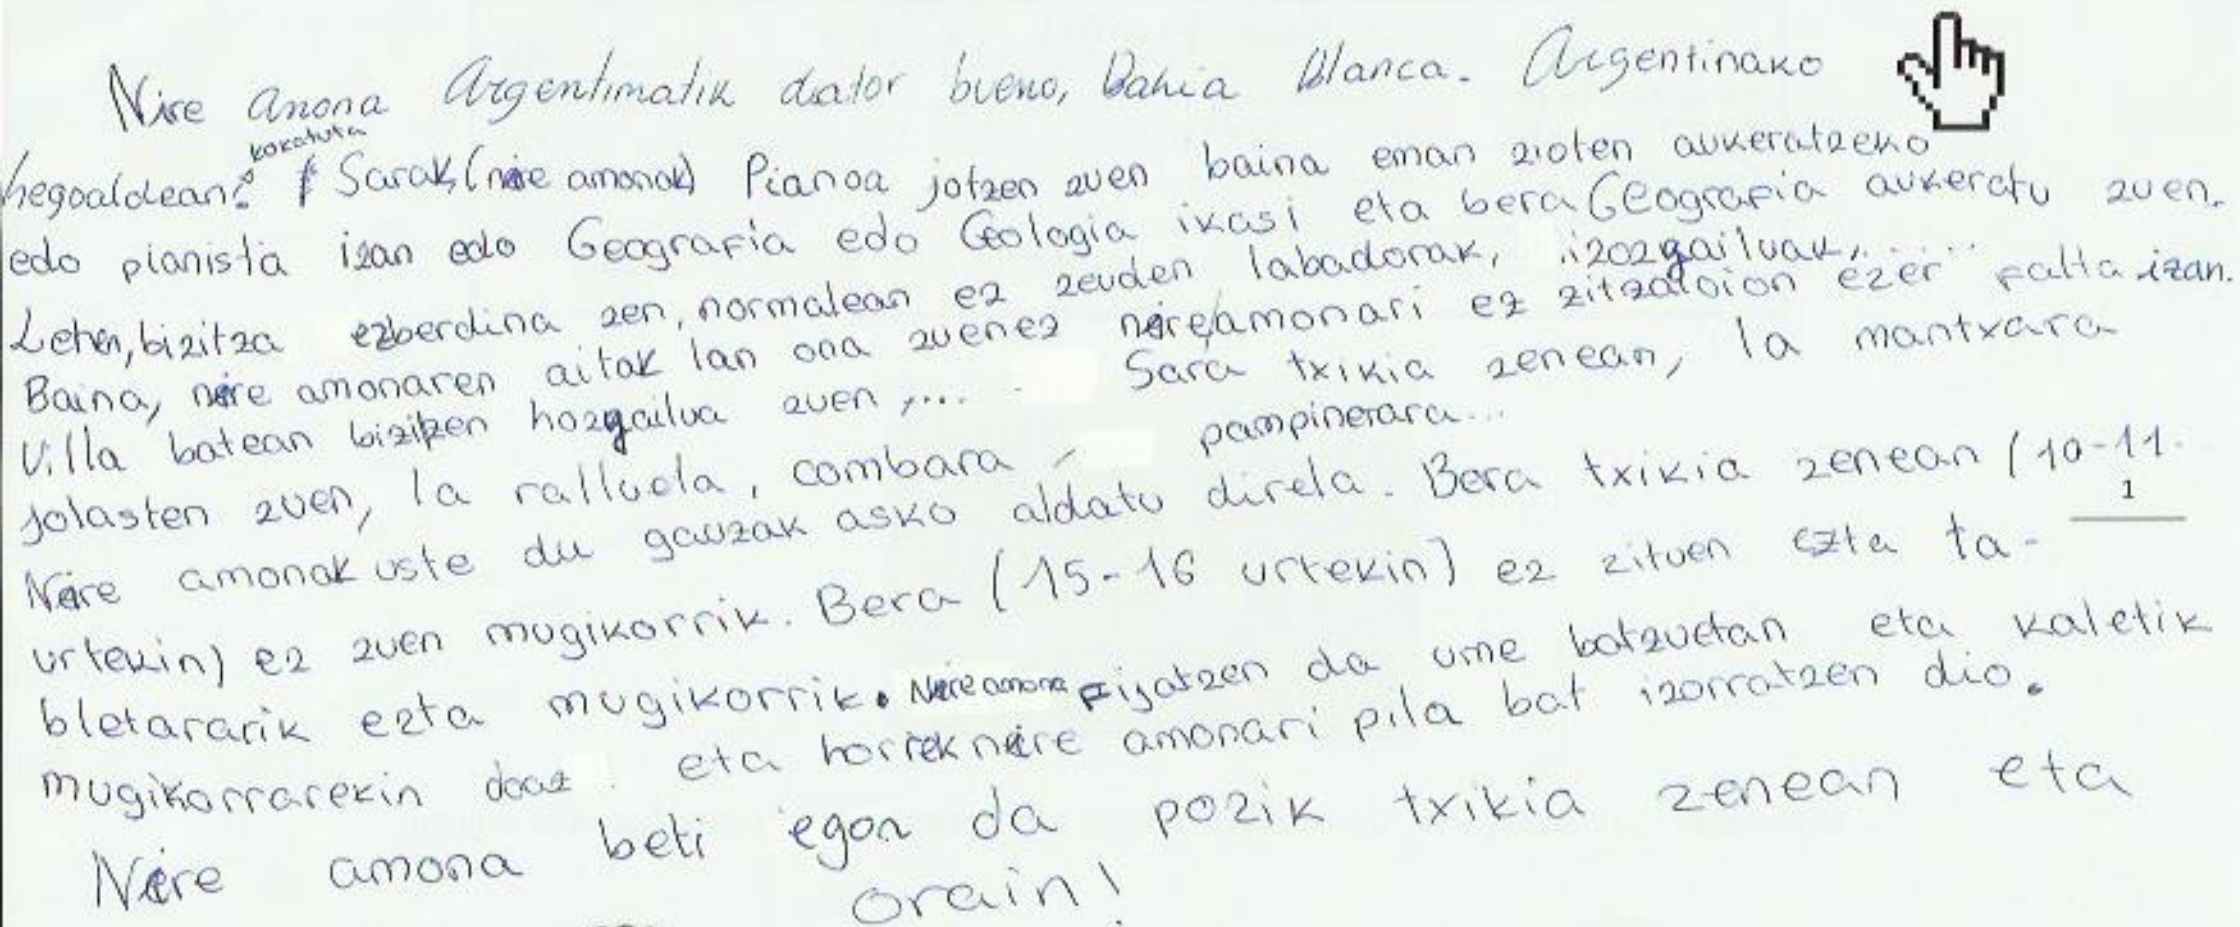 Nire anona Argentinatik dator bueno, Bahia Blanca. Argentinako
kokatuta
hegoaldean. Sarak (nire amonak) Pianoa jotzen zuen baina eman zioten aukeratzeko
edo pianista izan edo Geografia edo Geologia ikasi eta bera Geografia aukeratu zuen.
Lehen, bizitza ezberdina zen, normalean ez zeuden labadorak, izozgailuak,...
Baina, nire amonaren aitak lan ona zuenez nire amonari ez ezer falta izan.
Villa batean bizitzen hozgailua zuen,... Sara txikia zenean, la mantxara
jolasten zuen, la ralluela, combara, pampinerara...
Nire amonak uste du gauzak asko aldatu direla. Bera txikia zenean (10-11
1
urtekin) ez zuen mugikorrik. Bera (15-16 urtekin) ez zituen ezta ta-
bletararik ezta mugikorrik. Nire amona fijatzen da ume batzuetan eta kaletik
mugikorrarekin doaz eta horrek nire amonari pila bat izorratzen dio.
Nire amona beti egon da pozik txikia zenean eta
orain!